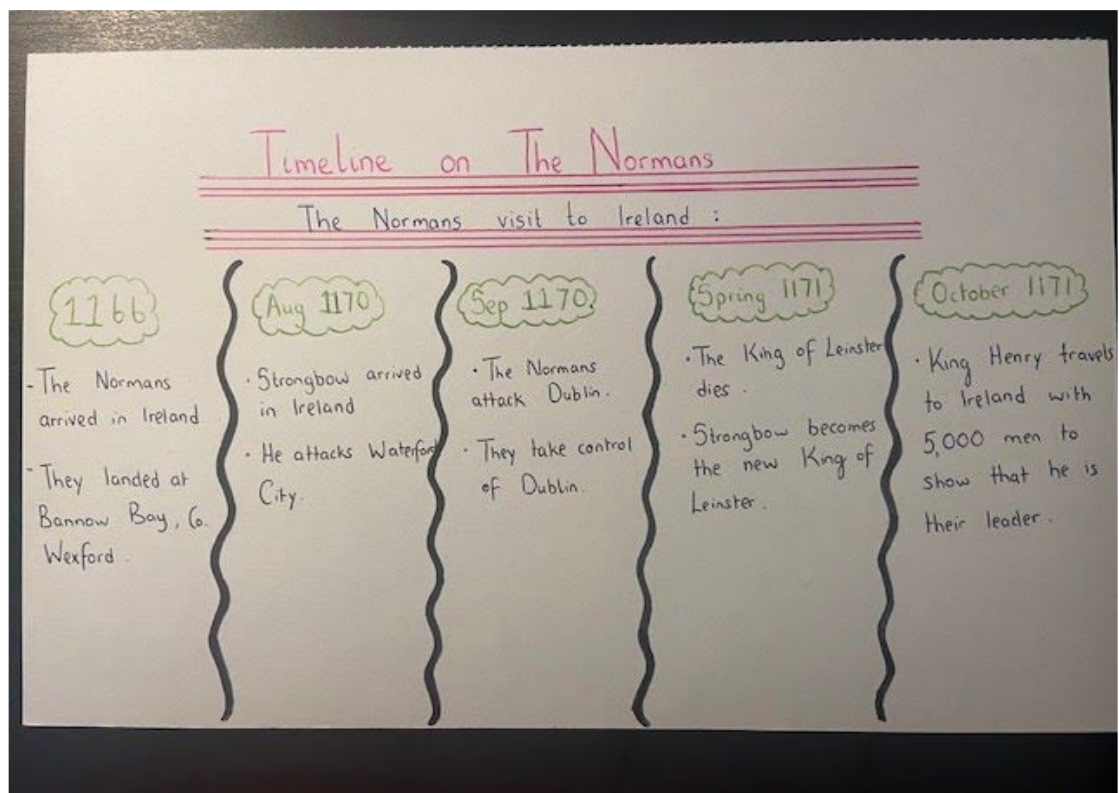 Timeline on The Normans
The Normans visit to Ireland :
1166
- The Normans
arrived in Ireland
- They landed at
Bannow Bay, Co.
Wexford.
Aug 1170
· Strongbow arrived
in Ireland
· He attacks Waterford
City.
Sep 1170
· The Normans
attack Dublin.
· They take control
of Dublin.
Spring 1171
· The King of Leinster
dies.
· Strongbow becomes
the new King of
Leinster.
October 1171
· King Henry travels
to Ireland with
5,000 men to
show that he is
their leader.